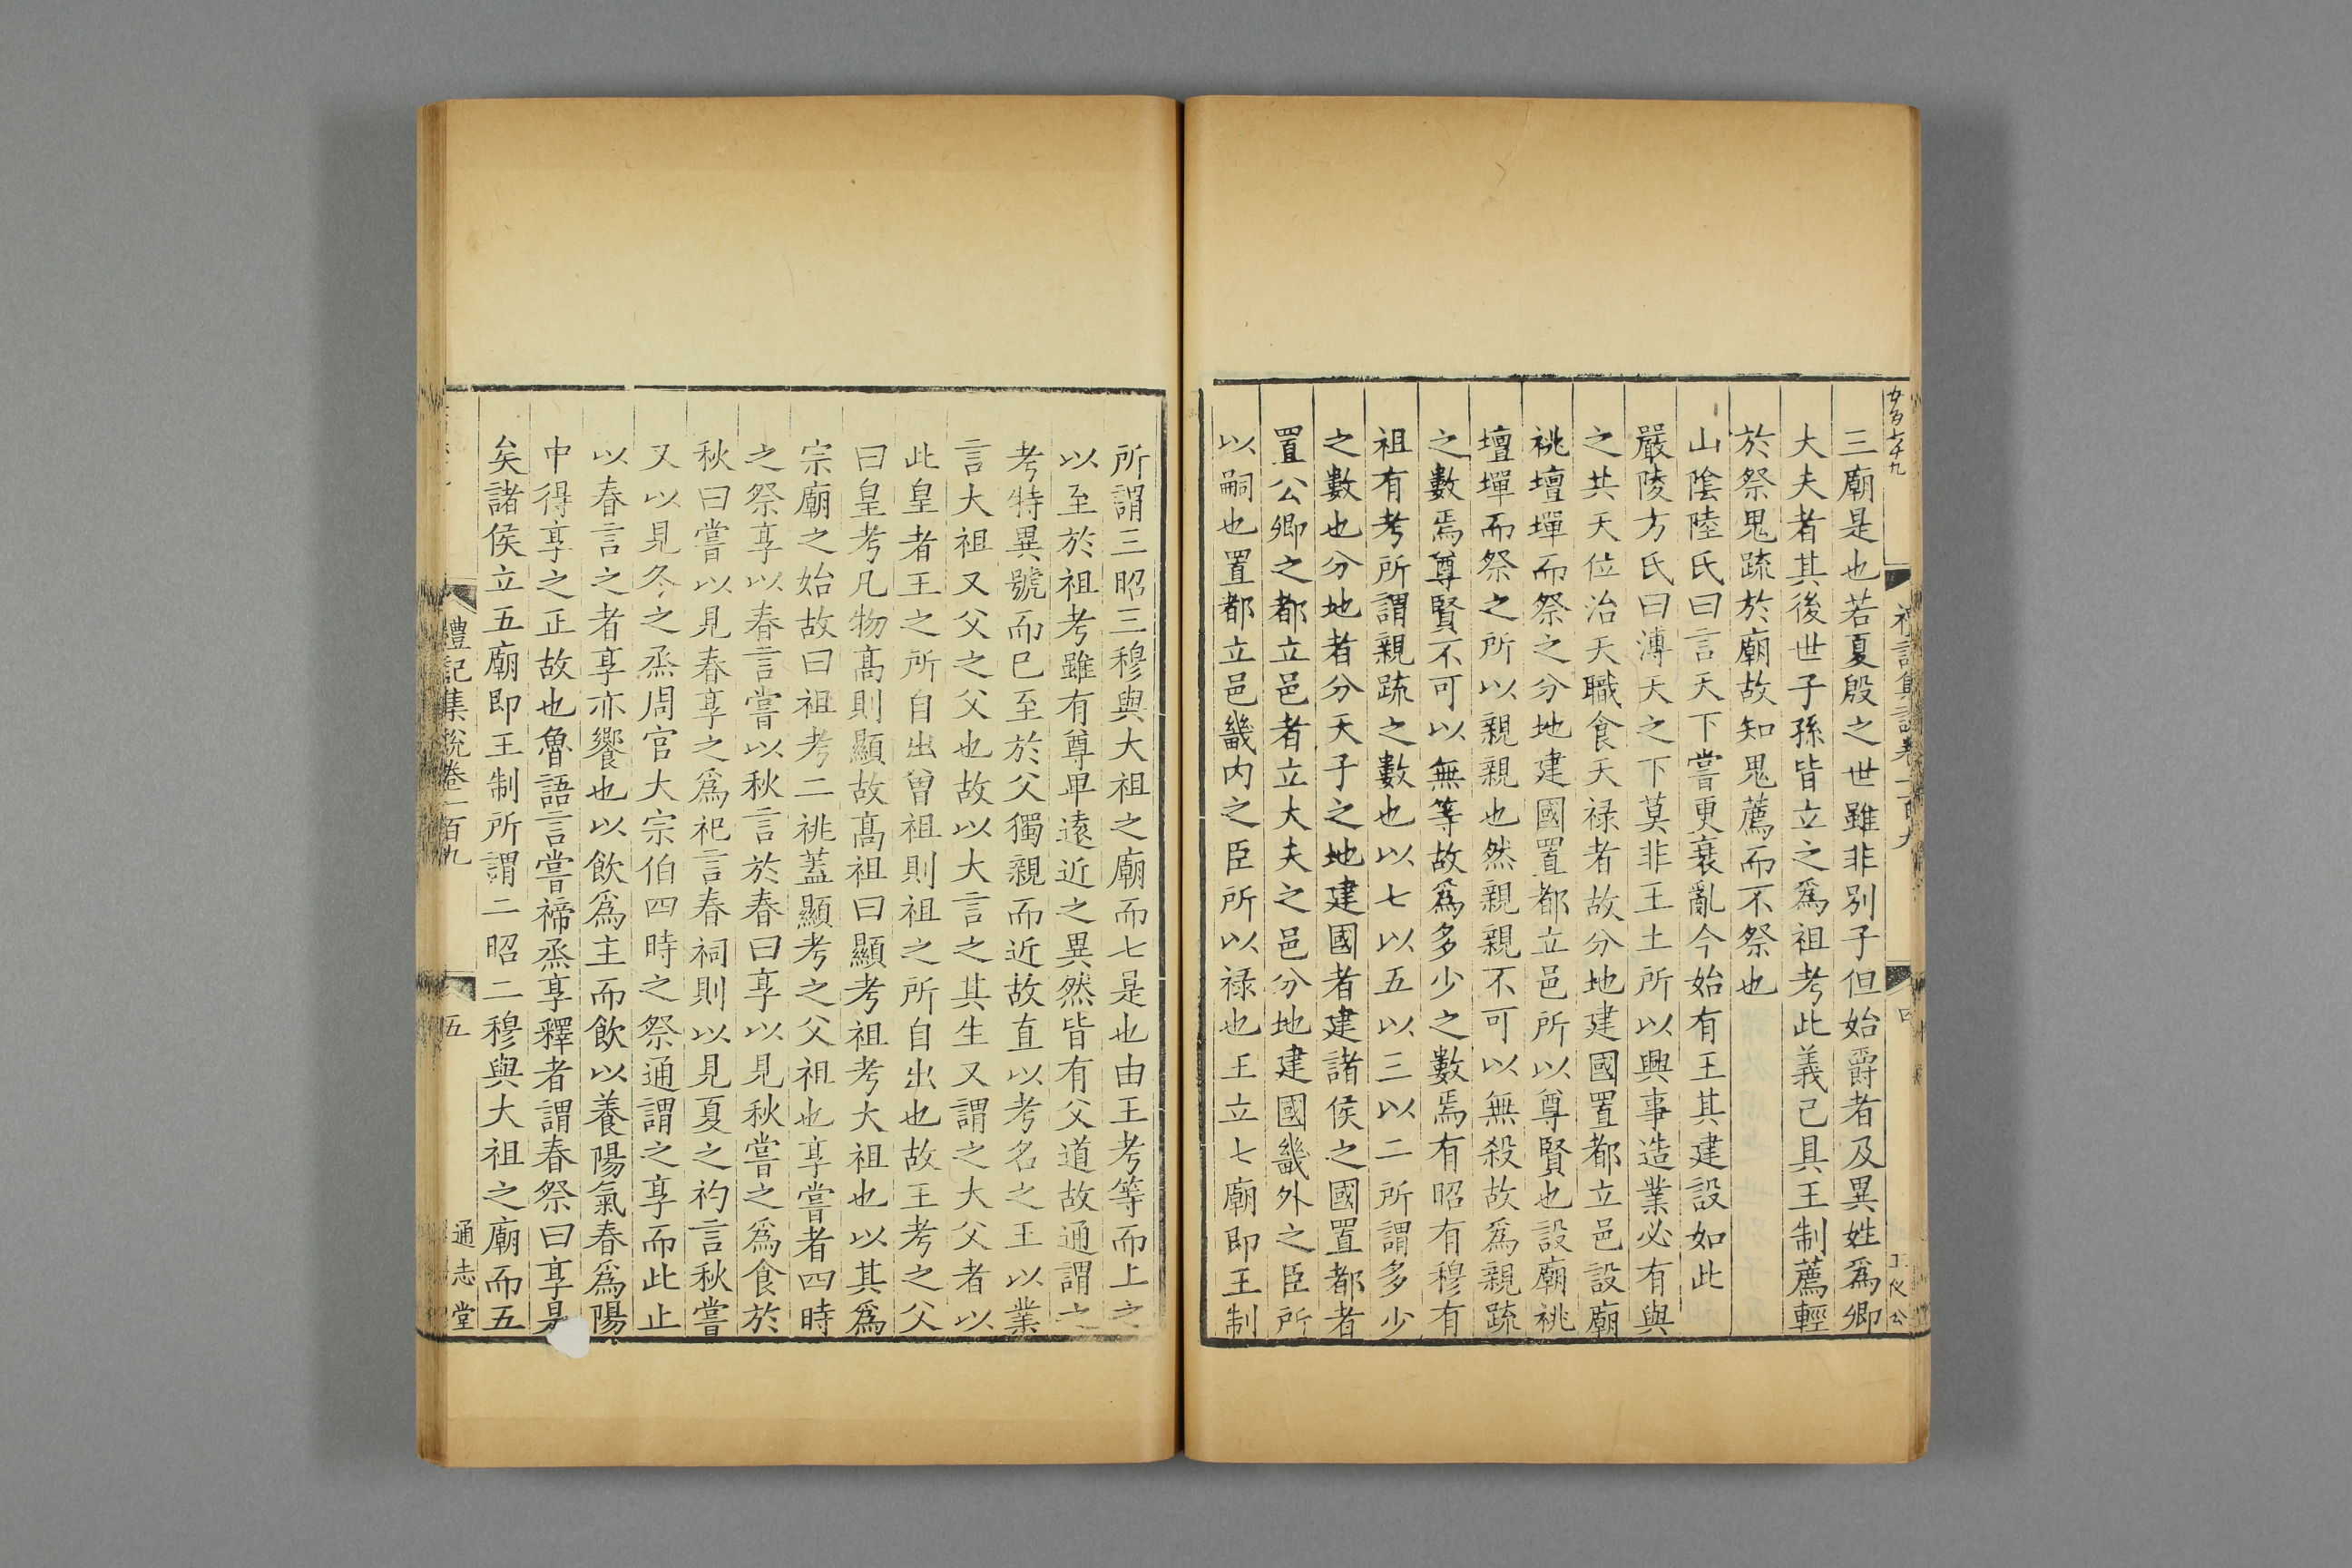 三廟是也若夏殷之世雖非別子但始爵者及異姓爲卿
大夫者其後世子孫皆立之爲祖考此義已具王制薦輕
於祭鬼疏於廟故知鬼薦而不祭也
山陰陸氏曰言天下嘗更衰亂今始有王其建設如此
嚴陵方氏曰溥天之下莫非王土所以興事造業必有與
之共天位治天職食天禄者故分地建國置都立邑設廟
祧壇墠而祭之分地建國置都立邑所以尊賢也設廟祧
壇墠而祭之所以親親也然親親不可以無殺故爲親疏
之數焉尊賢不可以無等故爲多少之數焉有昭有穆有
祖有考所謂親疏之數也以七以五以三以二所謂多少
之數也分地者分天子之地建國者建諸侯之國置都者
置公卿之都立邑者立大夫之邑分地建國畿外之臣所
以嗣也置都立邑畿内之臣所以禄也王立七廟即王制
所謂三昭三穆與大祖之廟而七是也由王考等而上之
以至於祖考雖有尊卑遠近之異然皆有父道故通謂之
考特異號而已至於父獨親而近故直以考名之王以業
言大祖又父之父也故以大言之其生又謂之大父者以
此皇者王之所自出曾祖則祖之所自出也故王考之父
曰皇考凡物髙則顯故髙祖曰顯考祖考大祖也以其爲
宗廟之始故曰祖考二祧蓋顯考之父祖也享嘗者四時
之祭享以春言嘗以秋言於春曰享以見秋嘗之爲食於
秋曰嘗以見春享之爲祀言春祠則以見夏之礿言秋嘗
又以見冬之烝周官大宗伯四時之祭通謂之享而此止
以春言之者享亦饗也以飲爲主而飲以養陽氣春爲陽
中得享之正故也魯語言嘗禘烝享釋者謂春祭曰享是
矣諸侯立五廟即王制所謂二昭二穆與大祖之廟而五
禮記集説卷一百九
五
通志堂